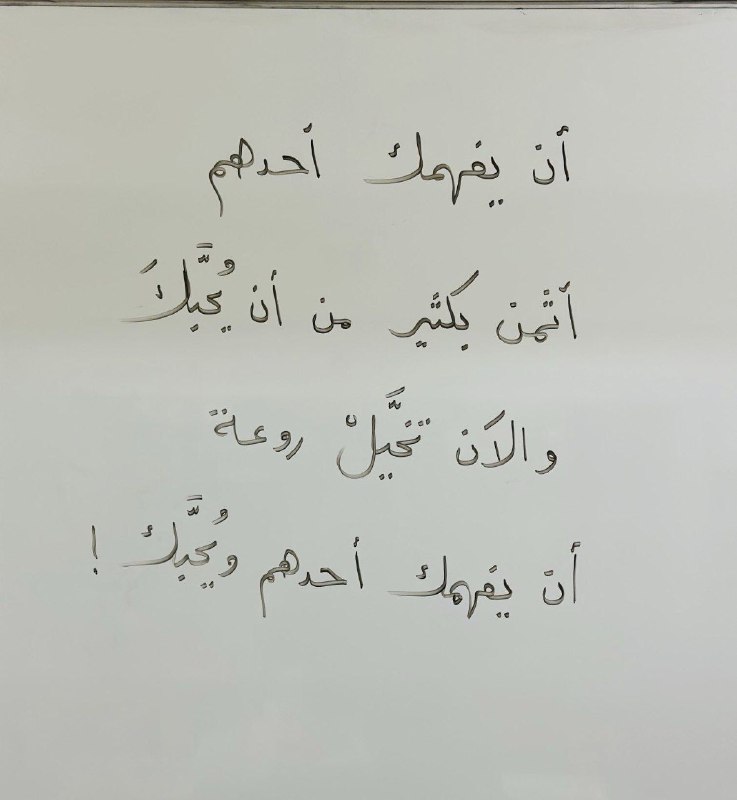 أن يفهمك أحدهم
أثمن بكثير من أن يُحبَّكَ
والآن تخيَّلْ روعة
أن يفهمك أحدهم ويُحبَّك !